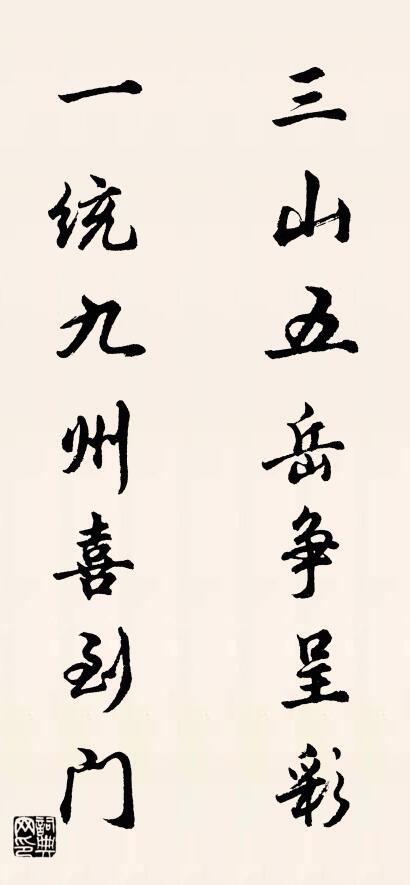 三山五岳争呈彩
一统九州喜到门
词典网印